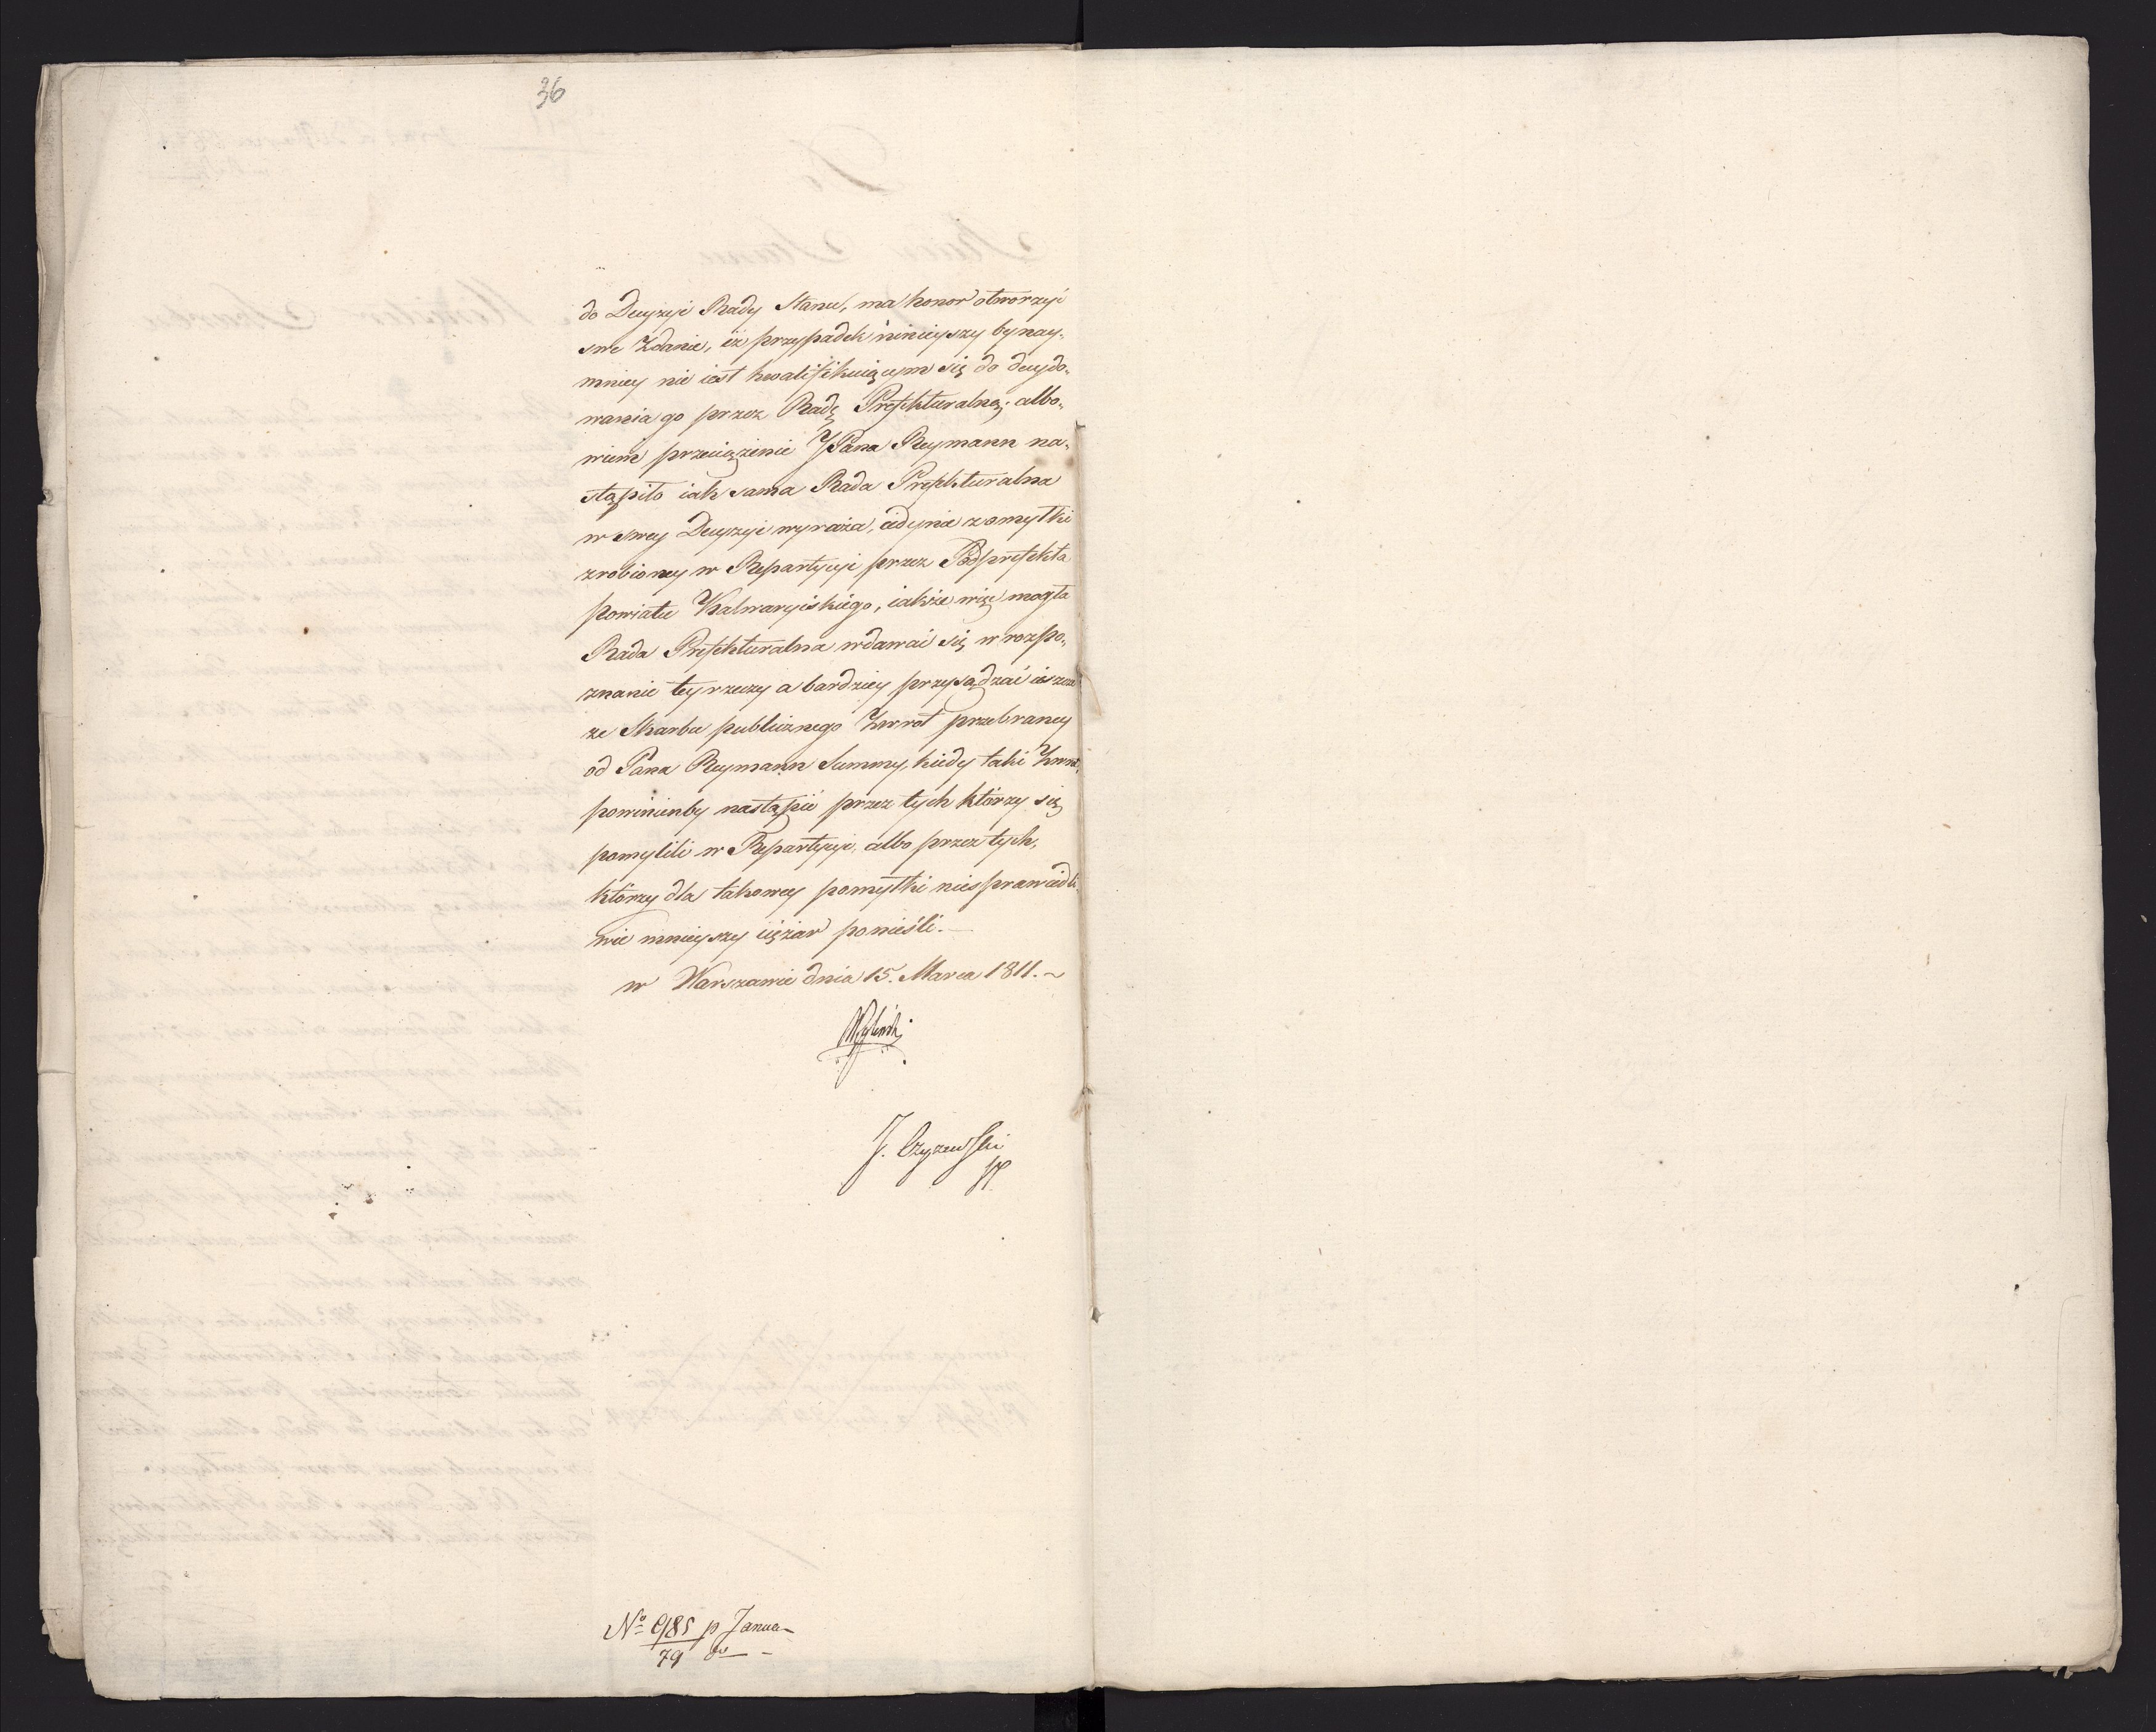 36
do Decyzyi Rady Stanu, ma honor otworzyć
swe Zdanie, iż przypadek ninieyszy bynay-
mniey nie iest kwalifikuiącym się do decydo-
wania go przez Radę Prefekturalną; albo-
wiem przeciążenie JPana Reymann na-
stąpiło iak sama Rada Prefekturalna
w swey Decyzyi wyraża, iedynie z omyłki
zrobioney w Repartycyi przez Podprefekta
powiatu Kalwaryiskiego, iakże więc mogła
Rada Prefekturalna wdawać się w rozpo-
znanie tey rzeczy a bardziey przysądzać ieszcze
ze Skarbu publicznego Zwrot przebraney
od Pana Reymann Summy, kiedy taki Zwrot
powinienby nastąpić przez tych którzy się
pomylili w Repartycyi, albo przez tych,
którzy dla takowey pomyłki niesprawiedli-
wie mnieyszy ciężar ponieśli.
w Warszawie dnia 15. Marca 1811.
J. Czyzewski
No 985 p Janua-
79